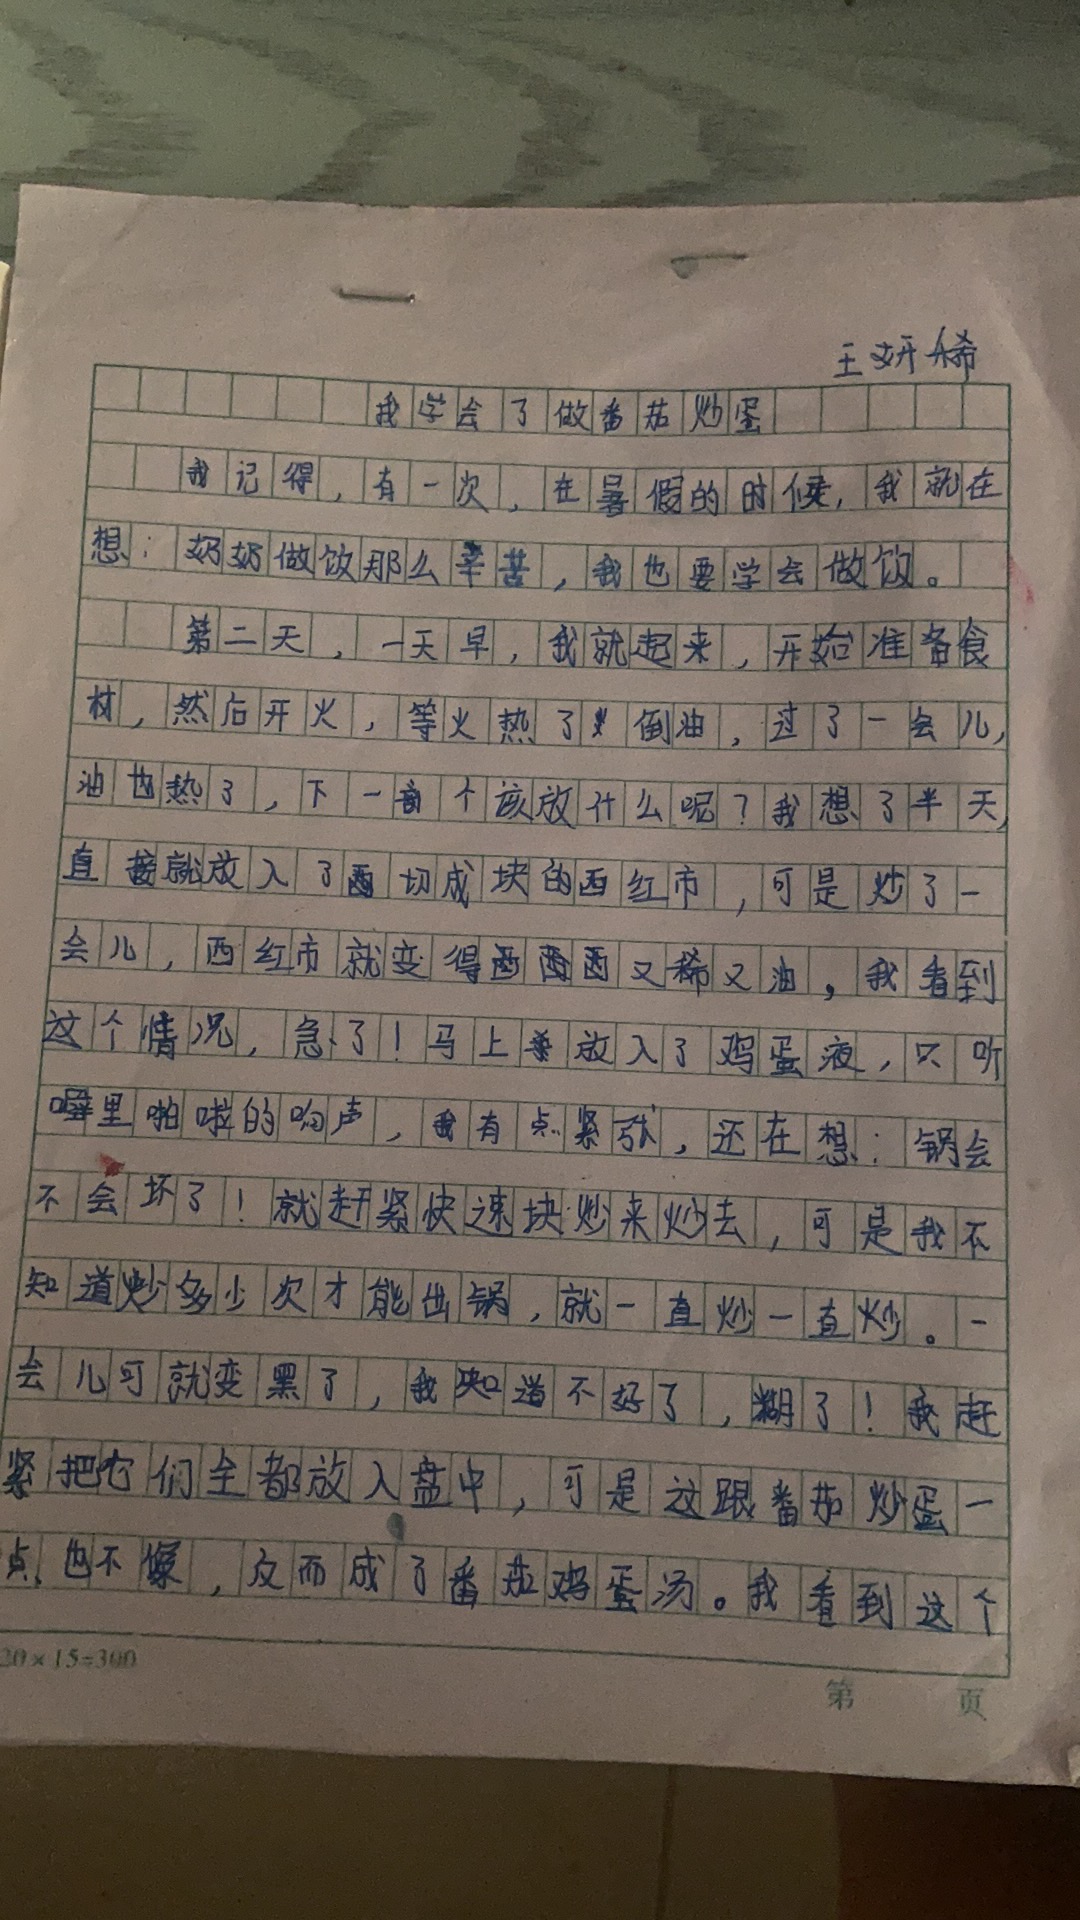 王妍烯
我学会了做番茄炒蛋
我记得，有一次，在暑假的时候，我就在
想：奶奶做饮那么辛苦，我也要学会做饮。
第二天，一天早，我就起来，开始准备食
材，然后开火，等火热了倒油，过了一会儿，
油也热了，下一个该放什么呢？我想了半天，
直接就放入了切成块的西红市，可是炒了一
会儿，西红市就变得又稀又油，我看到
这个情况，急了！马上放入了鸡蛋液，只听
噼里啪啦的响声，我有点紧张，还在想：锅会
不会坏了！就赶紧快速块炒来炒去，可是我不
知道炒多少次才能出锅，就一直炒一直炒。一
会儿可就变黑了，我知道不好了，糊了！我赶
紧把它们全都放入盘中，可是这跟番茄炒蛋一
点也不像，反而成了番茄鸡蛋汤。我看到这个
20×15=300
第 页